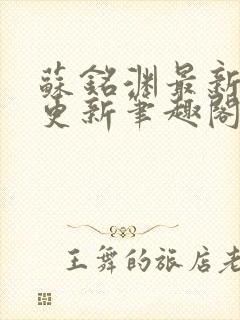 蘇銘淵最新
更新筆趣閣
王舞的旅店老